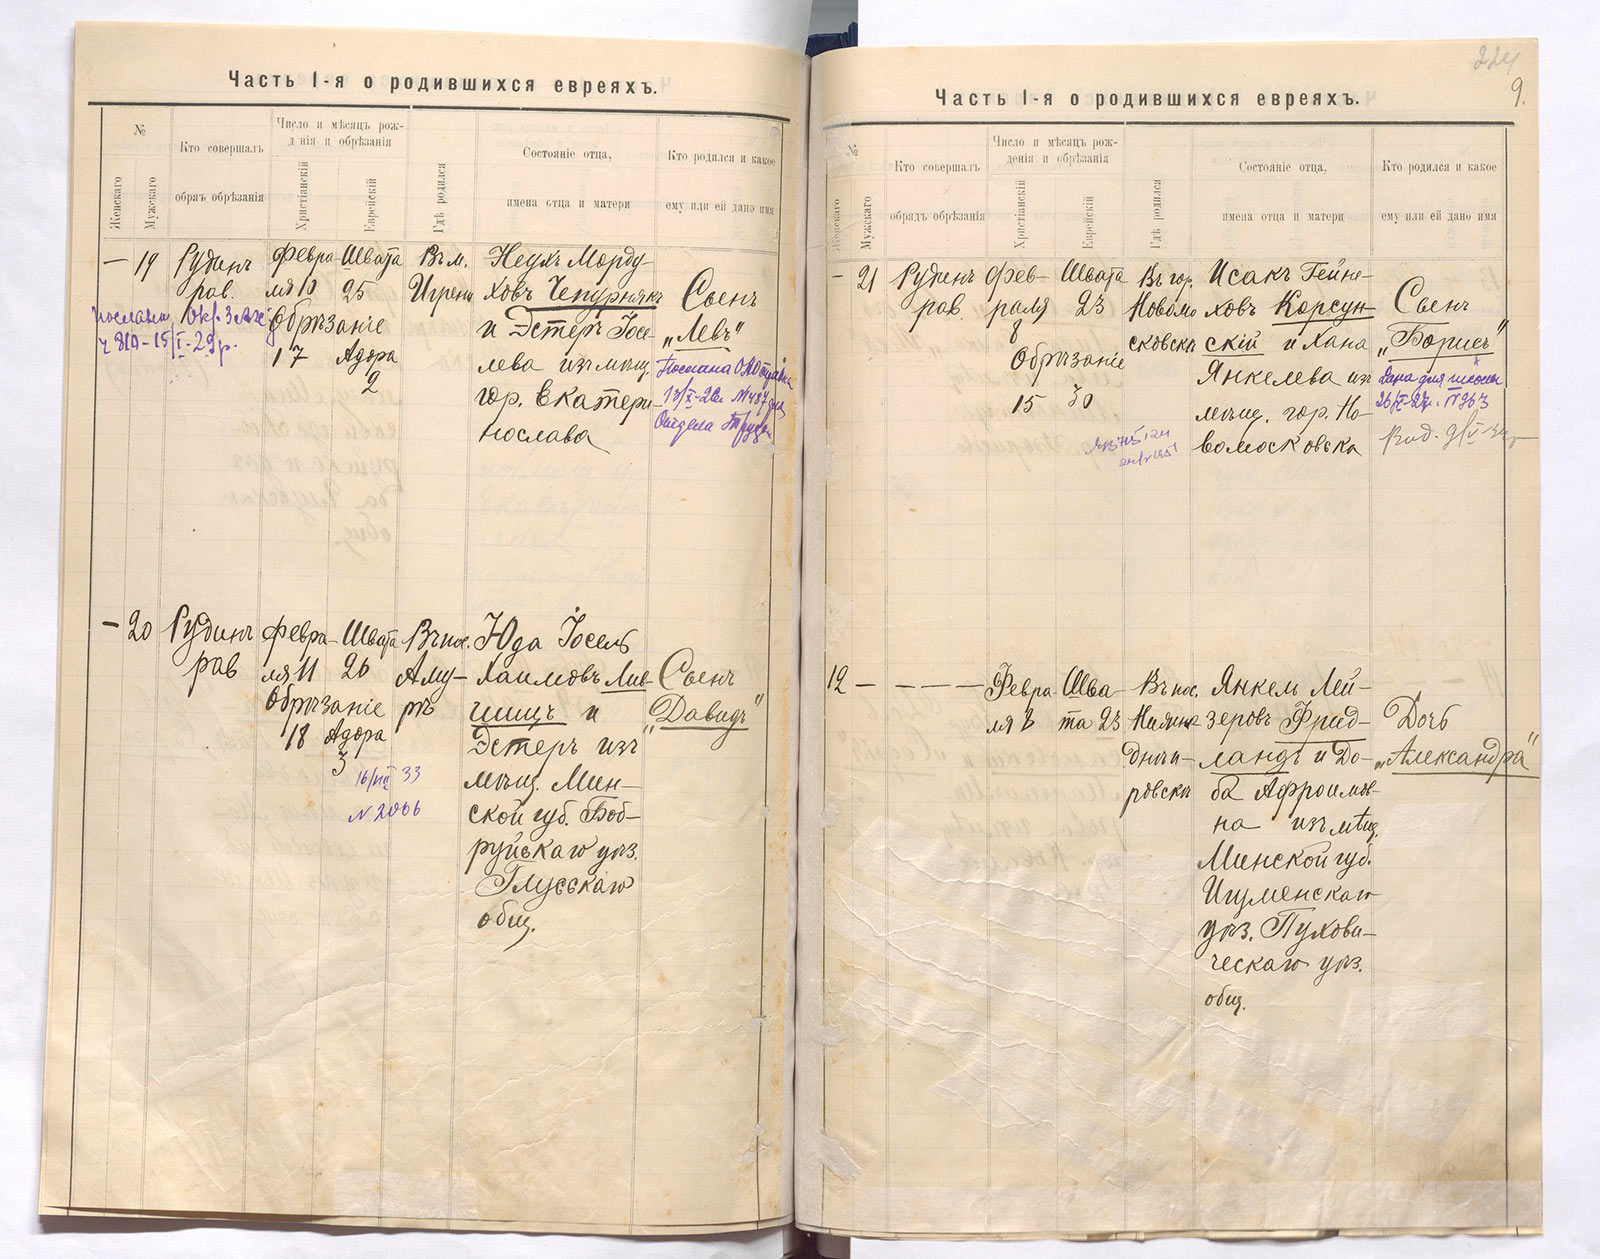 Часть I-я о родившихся евреяхъ.
№
Женскаго
Мужскаго
Кто совершалъ
обрядъ обрѣзанія
Число и мѣсяцъ рож-
денія и обрѣзанія
Христіанскій
Еврейскій
Гдѣ родился
Состояніе отца,
имена отца и матери
Кто родился и какое
ему или ей дано имя
— 19
Рудинъ
рав.
Февра
ля 10
Обрѣзаніе
17
Швата
25
Адора
2
Въ м.
Игрени
Неухъ Морду
ховъ Чепурнякъ
и Эстеръ Іосе-
лева изъ мѣщ.
гор. Екатери-
нослава
Сынъ
„Левъ“
— 20
Рудинъ
рав
Февра-
ля 11
Обрѣзаніе
18
Швата
26
Адора
3
16/VIII 33
N 2006
Въ пос.
Аму-
ръ
Юда Іосель
Хаимовъ Лив-
шицъ и
Эстеръ изъ
мѣщ. Мин-
ской губ. Боб-
руйскаго уѣз.
Глусскаго
общ.
Сынъ
„Давидъ“
224
9.
Часть I-я о родившихся евреяхъ.
№
Женскаго
Мужскаго
Кто совершалъ
обрядъ обрѣзанія
Число и мѣсяцъ рож-
денія и обрѣзанія
Христіанскій
Еврейскій
Гдѣ родился
Состояніе отца,
имена отца и матери
Кто родился и какое
ему или ей дано имя
— 21
Рудинъ
рав.
Фев-
раля
8
Обрѣзаніе
15
Швата
23
30
Въ гор.
Новомо
сковскѣ
Исакъ Гейне-
ховъ Корсун-
скій и Хана
Янкелева из
мѣщ. гор. Но-
вомосковска
Сынъ
„Борисъ“
Дана для школы
12 — — — —
Февра
ля 8
Шва-
та 23
Въ пос.
Нижне
Днѣп-
ровскѣ
Янкель Лей-
зеровъ Фрид-
ландъ и До-
ба Афроимов-
на изъ мѣщ.
Минской губ.
Игуменскаго
уѣз. Пухови-
ческаго уѣз.
общ.
Дочь
„Александра“